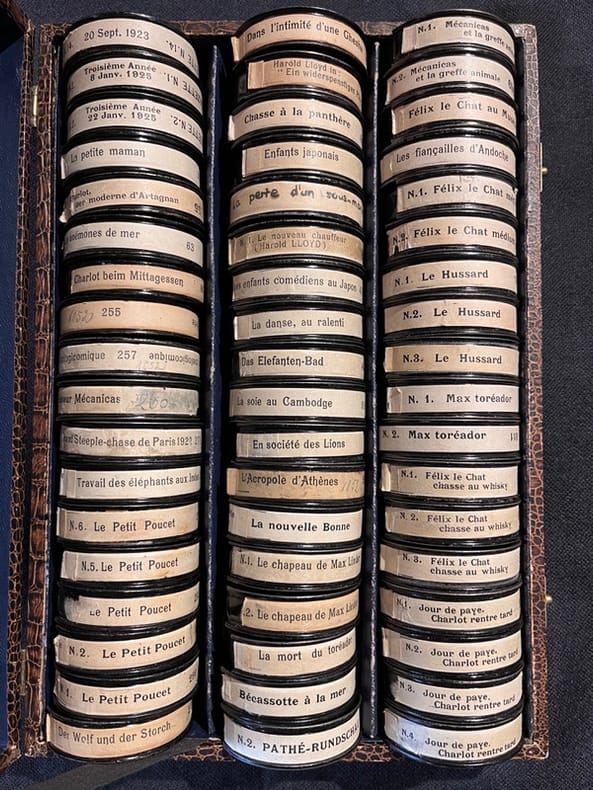 20 Sept. 1923
N.14.
Troisième Année
8 Janv. 1925
N.1
Troisième Année
22 Janv. 1925
N.2.
La petite maman
moderne d'Artagnan
de mer
63
Charlot beim Mittagessen
255
257
Mécanicas
Steeple-chase de Paris
Travail des éléphants aux
N.6. Le Petit Poucet
N.5. Le Petit Poucet
Le Petit Poucet
N.2. Le Petit Poucet
N.1. Le Petit Poucet
Der Wolf und der Storch
Dans l'intimité d'une
Harold Lloyd in:
"Ein widerspenstiger
Chasse à la panthère
Enfants japonais
perte d'un sous-
N.1. Le nouveau chauffeur
(Harold LLOYD)
enfants comédiens au Japon
La danse, au ralenti
Das Elefanten-Bad
La soie au Cambodge
En société des Lions
L'Acropole d'Athènes
La nouvelle Bonne
N.1. Le chapeau de Max Linder
.2. Le chapeau de Max Linder
La mort du toréador
Bécassotte à la mer
N.2. PATHÉ-RUNDSCHA
N.1. Mécanicas
et la greffe
N.2. Mécanicas
et la greffe animale
Félix le Chat au
Les fiançailles d'Andoche
N.1. Félix le Chat
N.2. Félix le Chat
N.1. Le Hussard
N.2. Le Hussard
N.3. Le Hussard
N. 1. Max toréador
N. 2. Max toréador
N.1. Félix le Chat
chasse au whisky
N. 2. Félix le Chat
chasse au whisky
N. 3. Félix le Chat
chasse au whisky
N.1. Jour de paye.
Charlot rentre tard
N.2. Jour de paye.
Charlot rentre tard
N.3. Jour de paye.
Charlot rentre tard
N.4. Jour de paye.
Charlot rentre tard